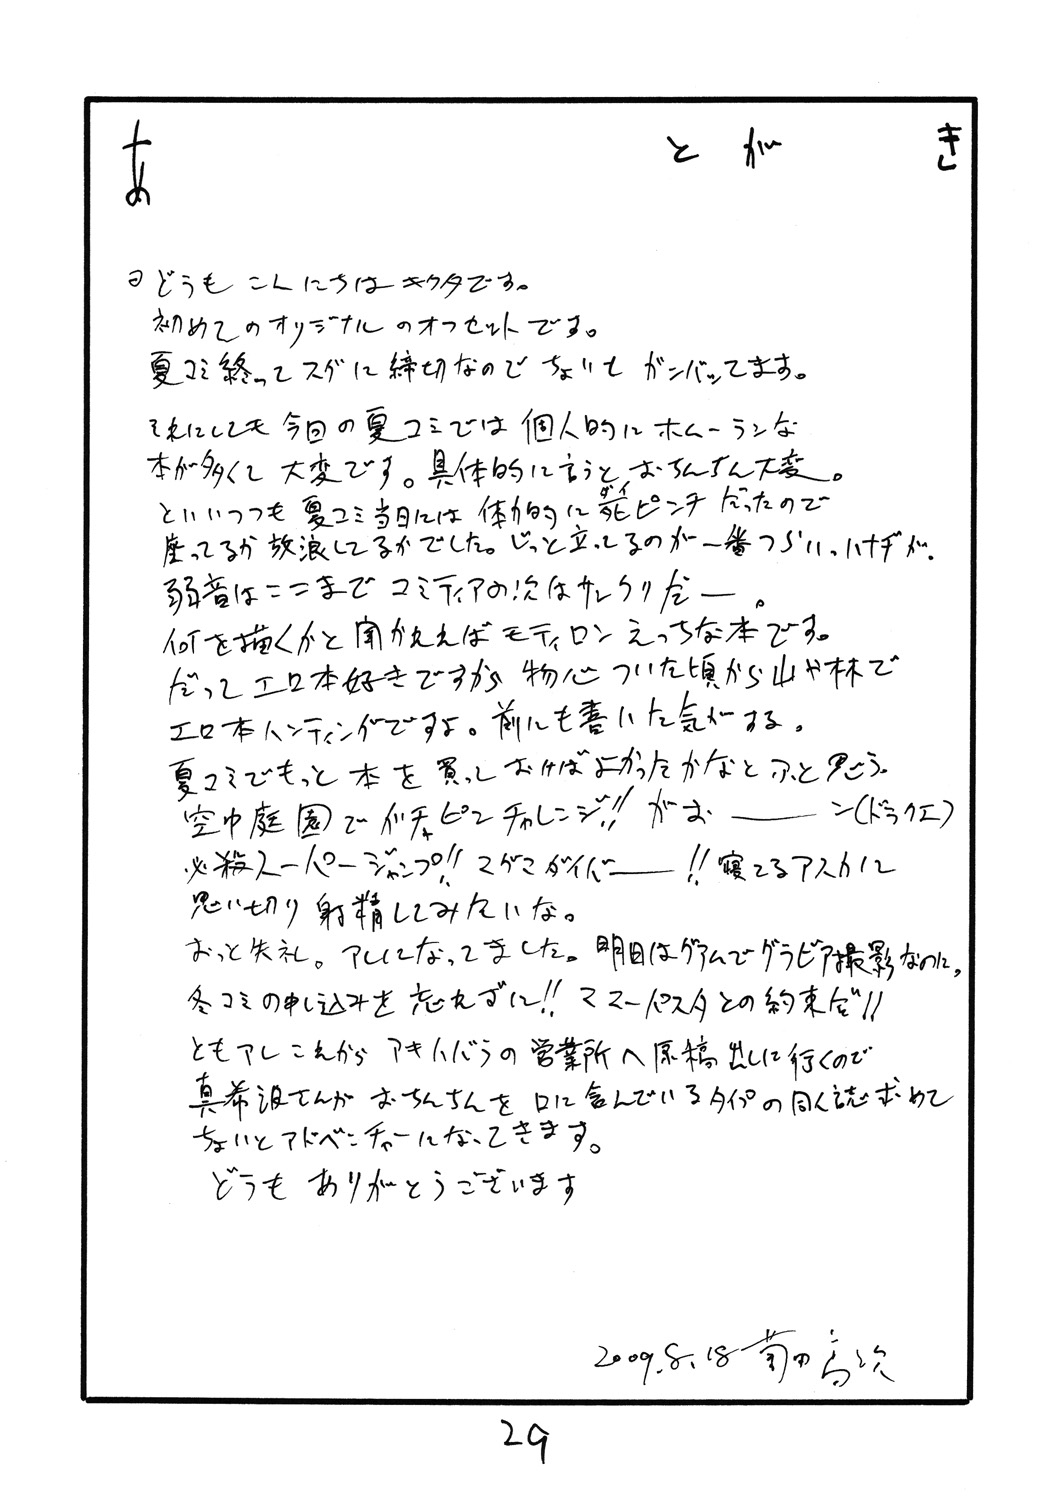 あとがき
どうもこんにちはキクタです。
初めてのオリジナルのオフセットです。
夏コミ終ってスグに締切なのでちょいとガンバッてます。
それにしても今回の夏コミでは個人的にホームランな
本が多くて大変です。具体的に言うとおちんちん大変。
といいつつも夏コミ当日には体力的に死ピンチだったので
ダイ
座ってるか放浪してるかでした。じっと立ってるのが一番つらい。ハナヂが。
弱音はここまでコミティアの次はサンクリだー。
何を描くかと聞かれればモティロンえっちな本です。
だってエロ本好きですから物心ついた頃から山や林で
エロ本ハンティングですよ。前にも書いた気がする。
夏コミでもっと本を買っておけばよかったかなとふと思う。
空中庭園でガチャピンチャレンジ!!がお―――ン(ドラクエ)
必殺スーパージャンプ!!マグマダイバー――!!寝てるアスカに
思い切り射精してみたいな。
おっと失礼。アレになってました。明日はグアムでグラビア撮影なのに。
冬コミの申し込みを忘れずに!!ママーパスタとの約束だ!!
ともアレこれからアキハバラの営業所へ原稿出しに行くので
真希波さんがおちんちんを口に含んでいるタイプの同人誌求めて
ちょいとアドベンチャーになってきます。
どうもありがとうございます
2009.8.18 菊田高次
29